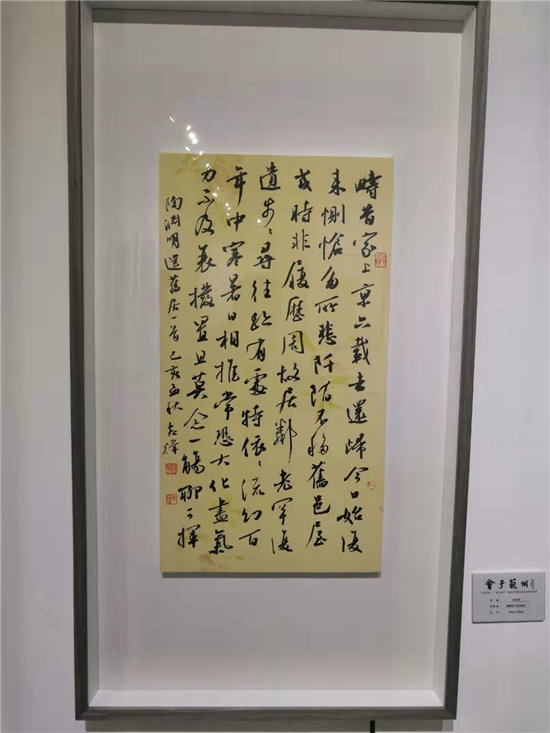 疇昔家上京六載去還歸今日始復
来惻愴多所悲阡陌不移舊邑屋
或時非履歷周故居鄰老罕復
遺步〻尋往跡有處特依〻流幻百
年中寒暑日相推常恐大化盡氣
力不及衰撥置且莫念一觴聊可揮
陶淵明還舊居一首己亥孟秋
會于蘇州